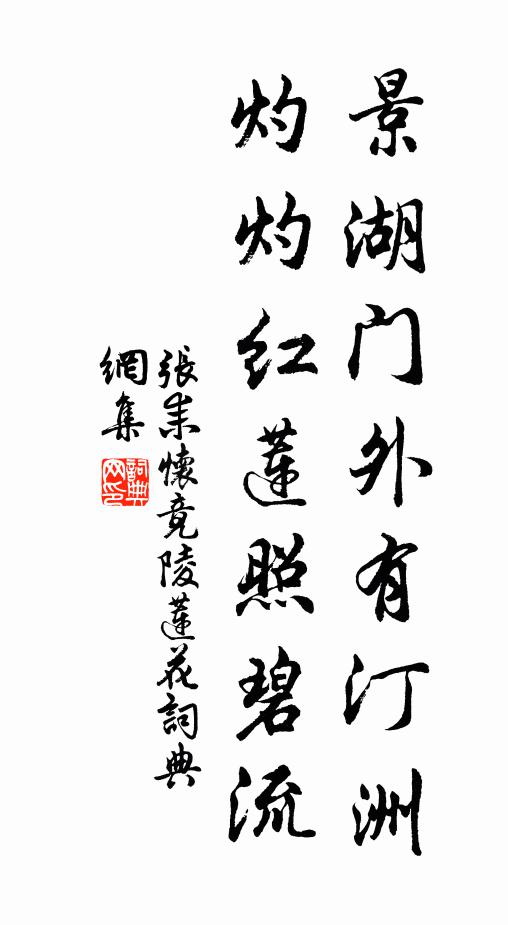 景湖门外有汀洲
灼灼红蓮照碧流
張耒懷竟陵蓮花詞典
網集
詞典
网印